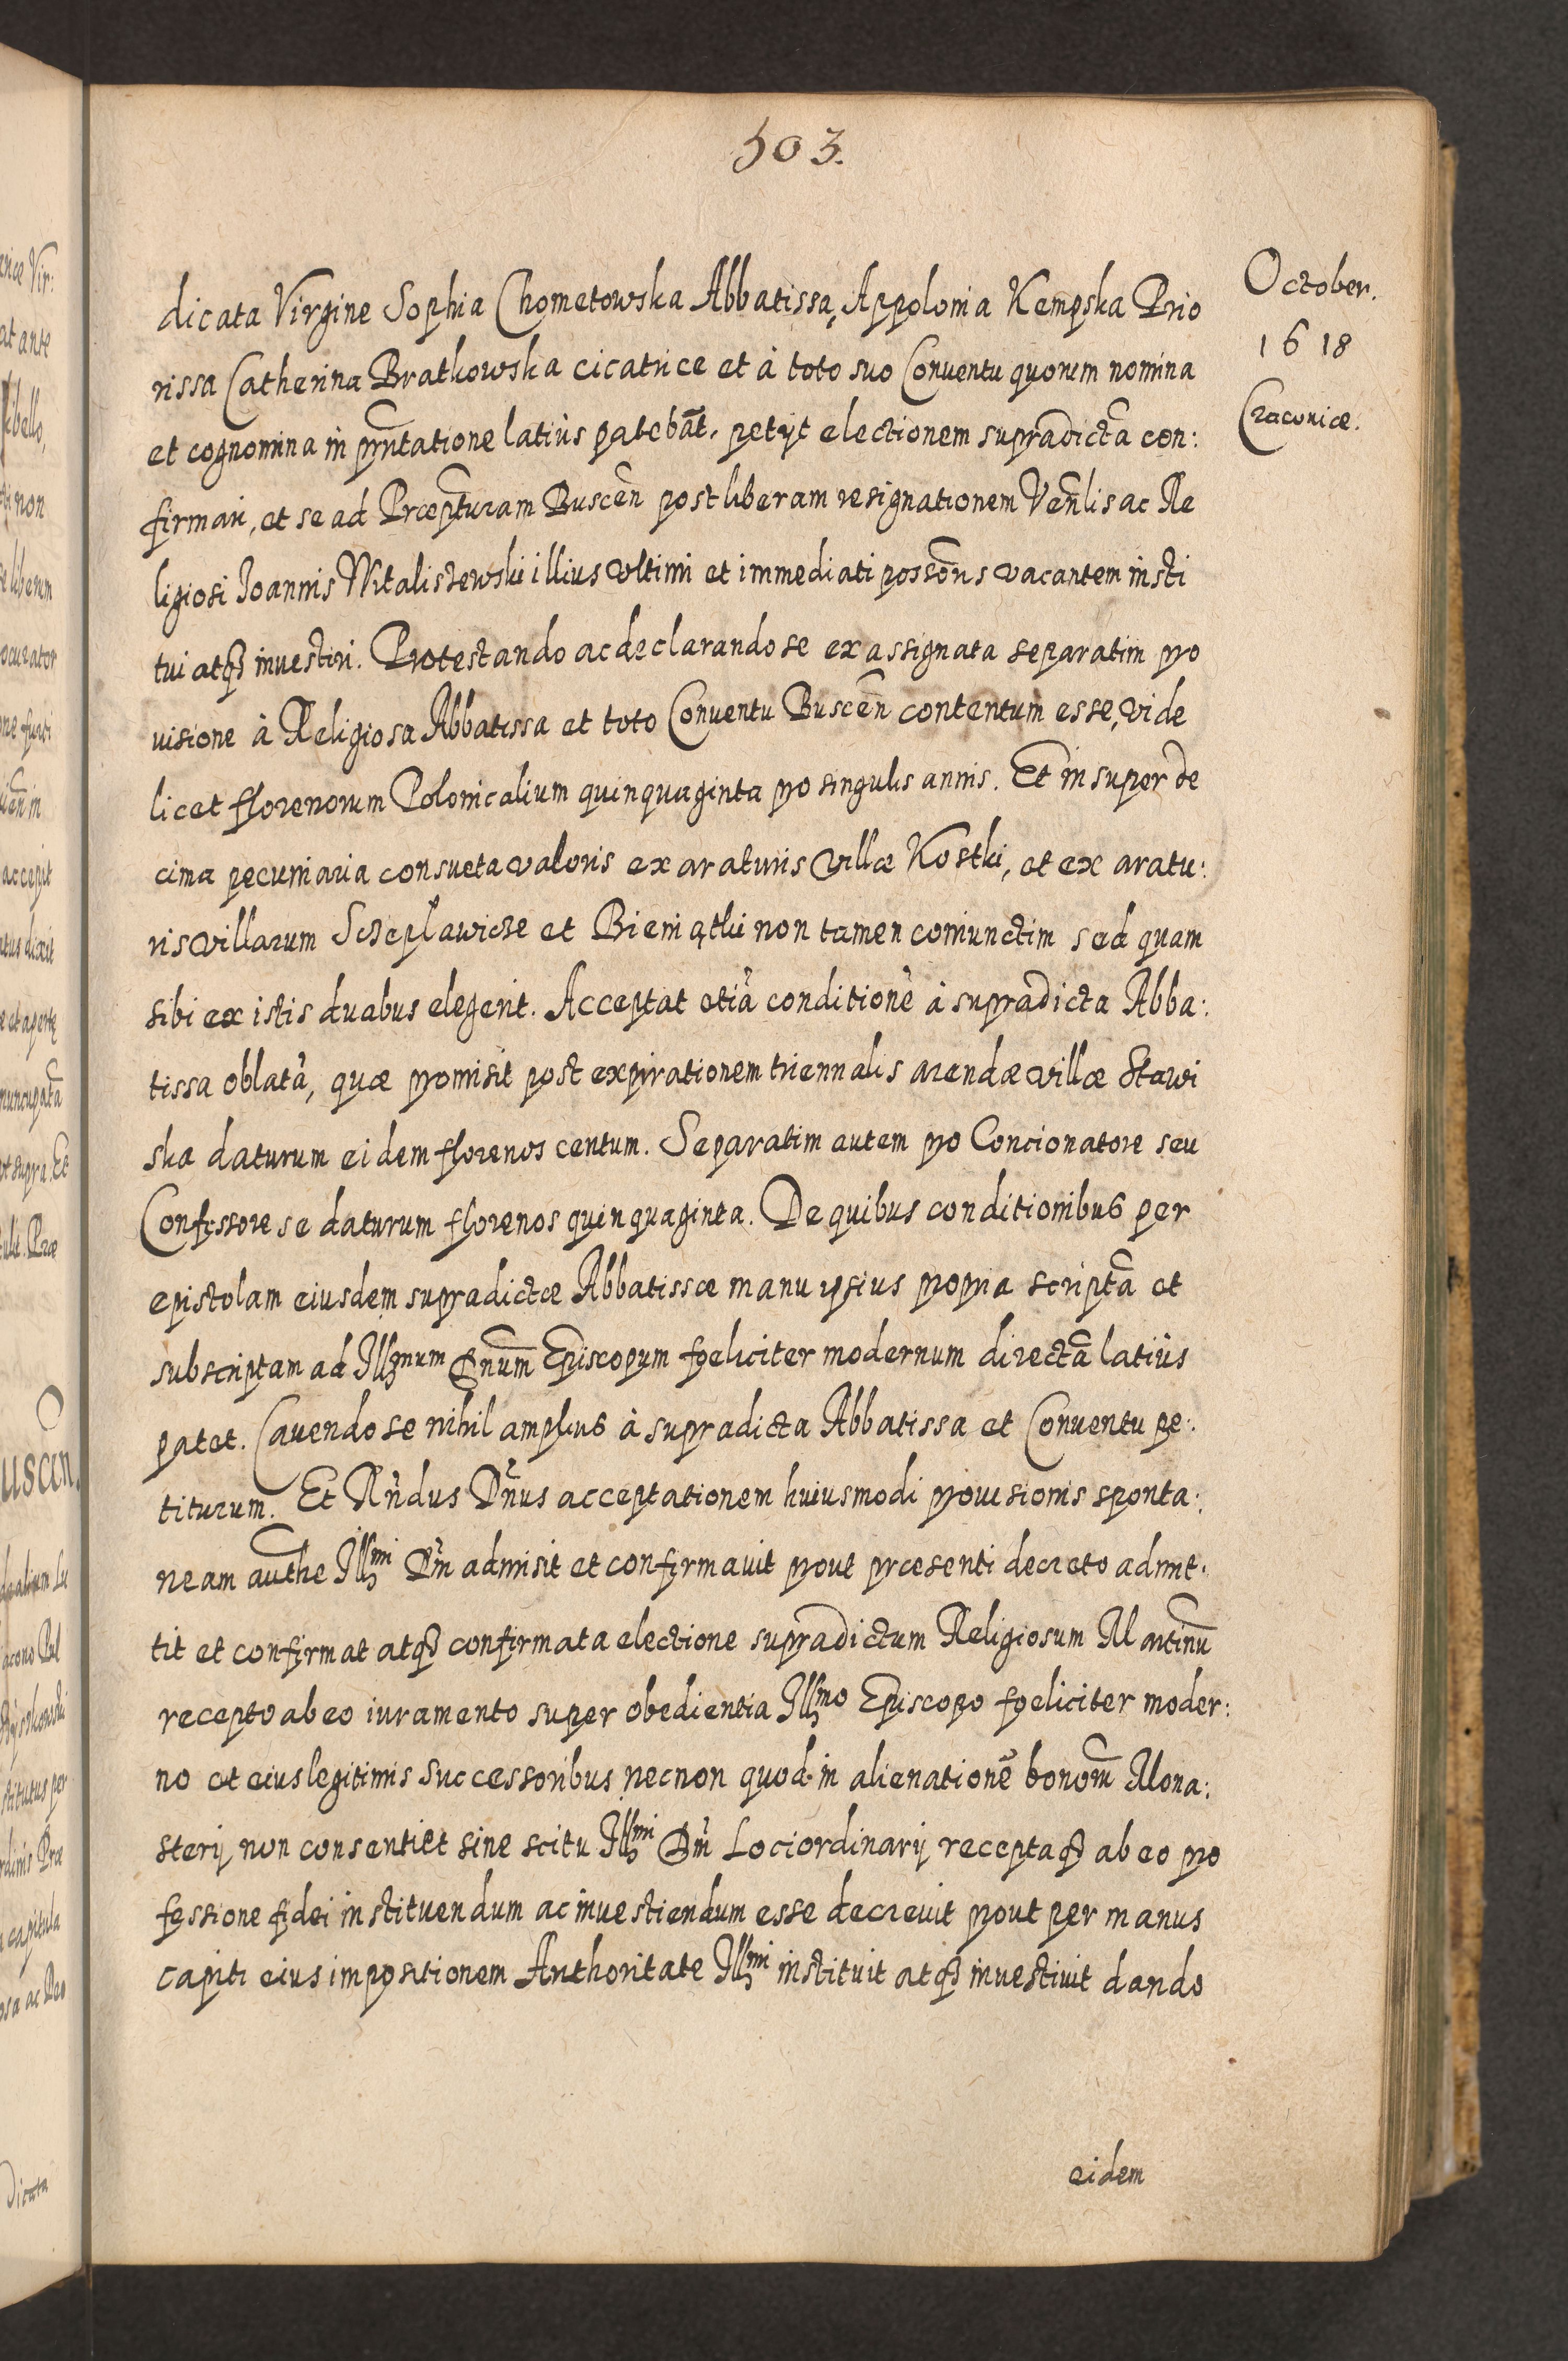 503.
October.
1618
Cracoviæ.
dicata Virgine Sophia Chometowska Abbatissa, Appolonia Kempska Prio
rissa Catherina Bratkowska cicatrice et à toto suo Conventu quorum nomina
et cognomina in pn̄tatione latiùs patebāt. petÿt electionem supradictā con:
firmari, et se ad Præpt̄uram Buscēn post liberam resignationem Ven̄lis ac Re
ligiosi Joannis Witaliszewski illius vltimi et immediati possōris vacantem insti
tui atq̄ investiri. Protestando ac declarando se ex assignata separatim pro
visione à Religiosa Abbatissa et toto Conventu Buscēn contentum esse, vide
licet florenorum Polonicalium quinquaginta pro singulis annis. Et insuper de
cima pecuniaria consueta valoris ex araturis villæ Kostki, et ex aratu:
ris villarum Sczeplawicze et Bieniątki non tamen coniunctim sed quam
sibi ex istis duabus elegerit. Acceptat etiā conditionē à supradicta Abba:
tissa oblatā, quæ promisit post expirationem triennalis arendæ villæ Stawi
ska daturum eidem florenos centum. Separatim autem pro Concionatore seu
Confessore se daturum florenos quinquaginta. De quibus conditionibus per
epistolam eiusdem supradictæ Abbatissæ manu ipsius propria scriptā et
subscriptam ad Illmum Dnūm Episcopum fœliciter modernum directā latiùs
patet. Cavendo se nihil amplius à supradicta Abbatissa et Conventu pe:
titurum. Et Rn̄dus Dn̄us acceptationem huiusmodi provisionis sponta:
neam auth̄e Illmi Dn̄i admisit et confirmavit prout præsenti decreto admit:
tit et confirmat atq̄ confirmata electione supradictum Religiosum Martinū
recepto ab eo iuramento super obedientia Illmo Episcopo fœliciter moder:
no et eius legitimis successoribus necnon quod in alienationē bonorū Mona:
sterij non consentiet sine scitu Illmi Dn̄i Loci ordinarij receptaq̄ ab eo pro
fessione fidei instituendum ac investiendum esse decrevit prout per manus
capiti eius impositionem Authoritate Illmi instituit atq̄ investivit dando
eidem